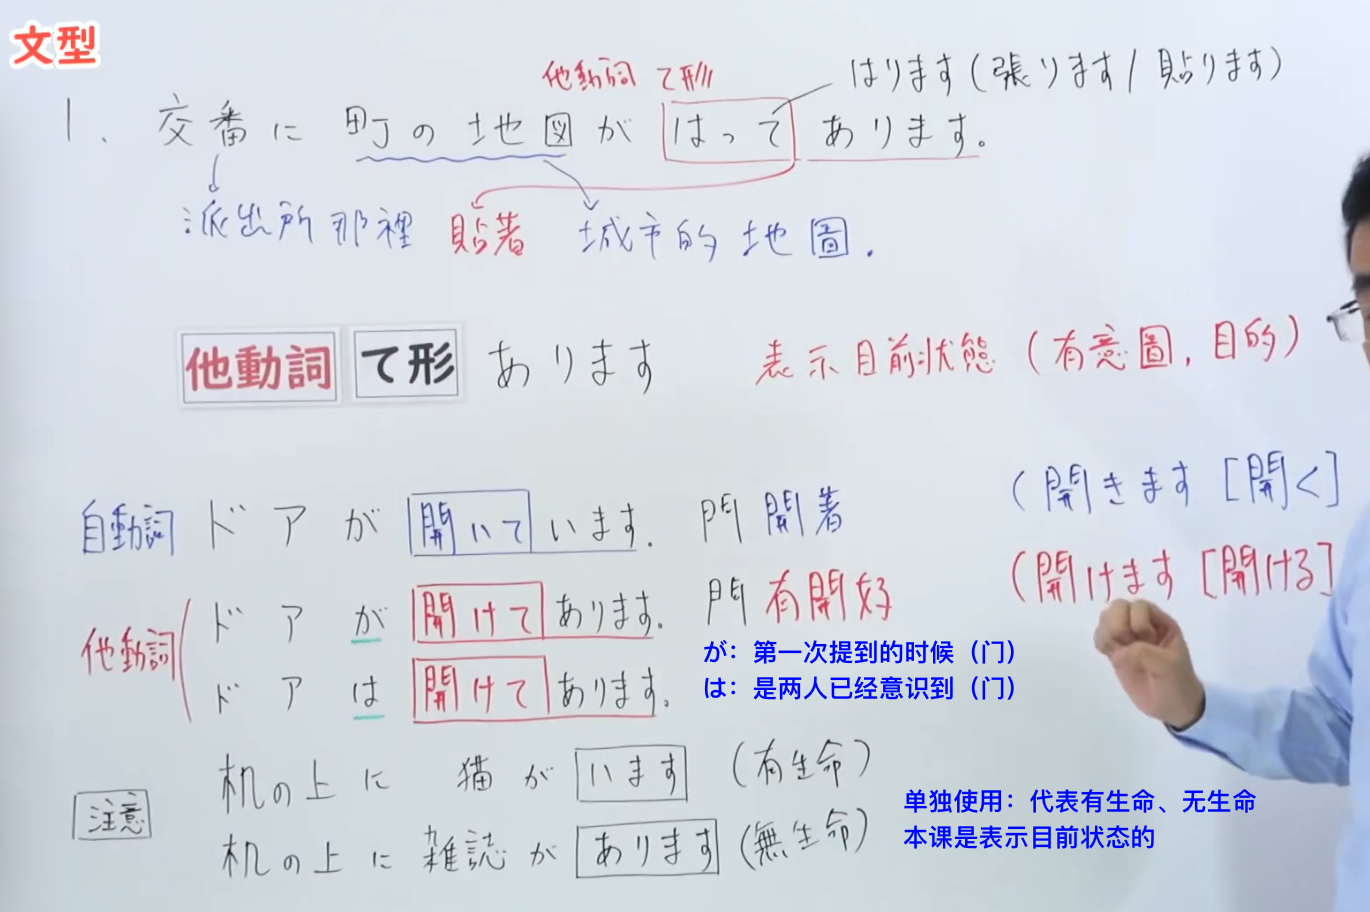 文型
他動詞 て形
はります(張ります/貼ります)
1. 交番に 町の地図が はって あります。
派出所那裡 貼著 城市的地圖.
他動詞 て形 あります 表示目前狀態(有意圖,目的)
自動詞 ドアが 開いて います. 門開著 (開きます [開く]
他動詞 ドアが 開けて あります. 門有開好 (開けます [開ける]
ドアは 開けて あります.
が：第一次提到的时候（门）
は：是两人已经意识到（门）
注意
机の上に 猫が います (有生命)
机の上に 雑誌が あります (無生命)
单独使用：代表有生命、无生命
本课是表示目前状态的